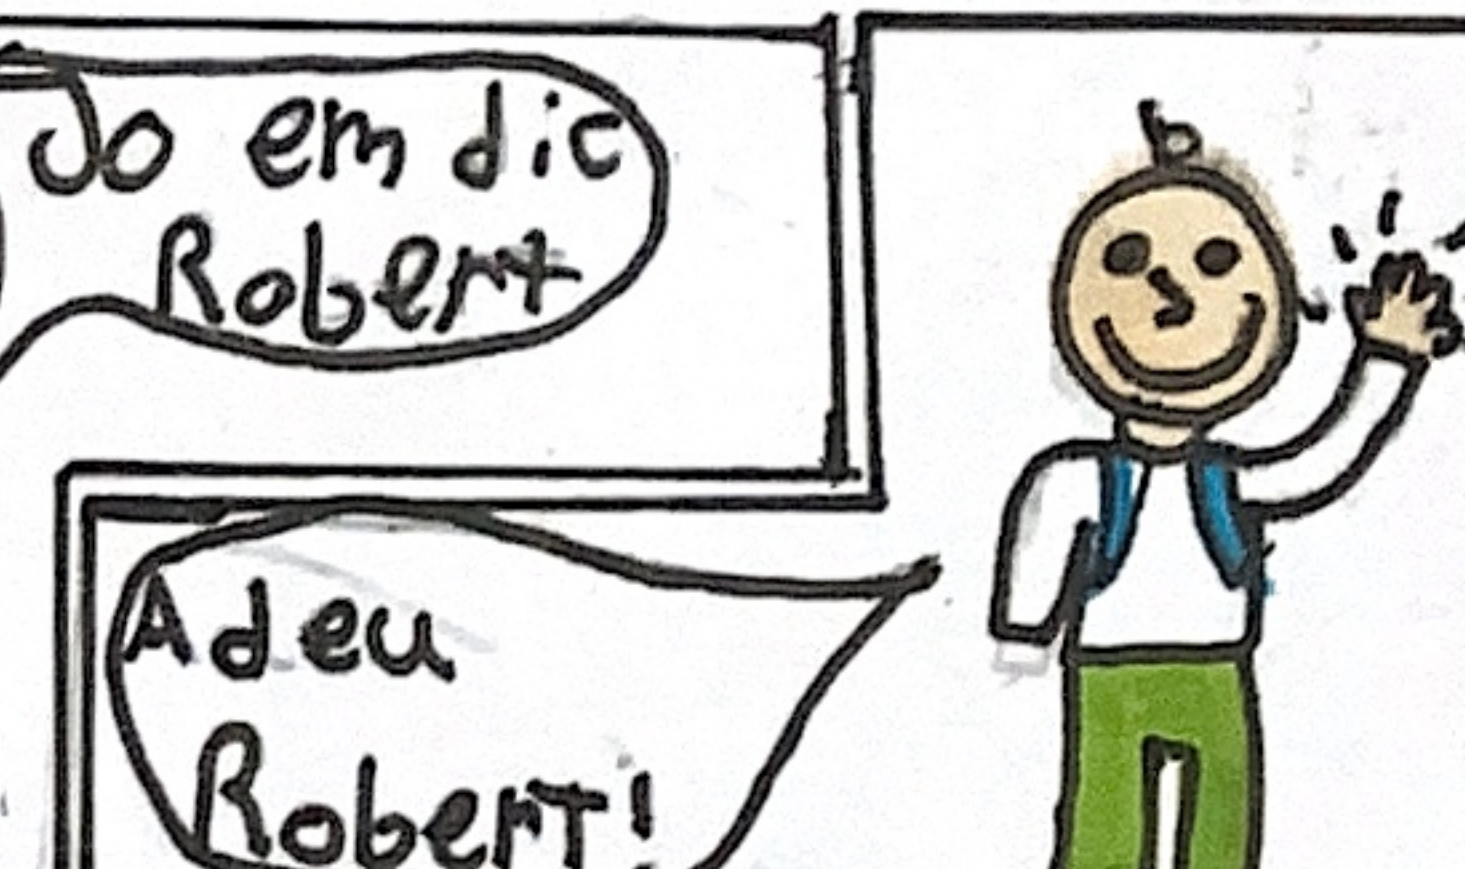 Jo em dic
Robert
Adeu
Robert!